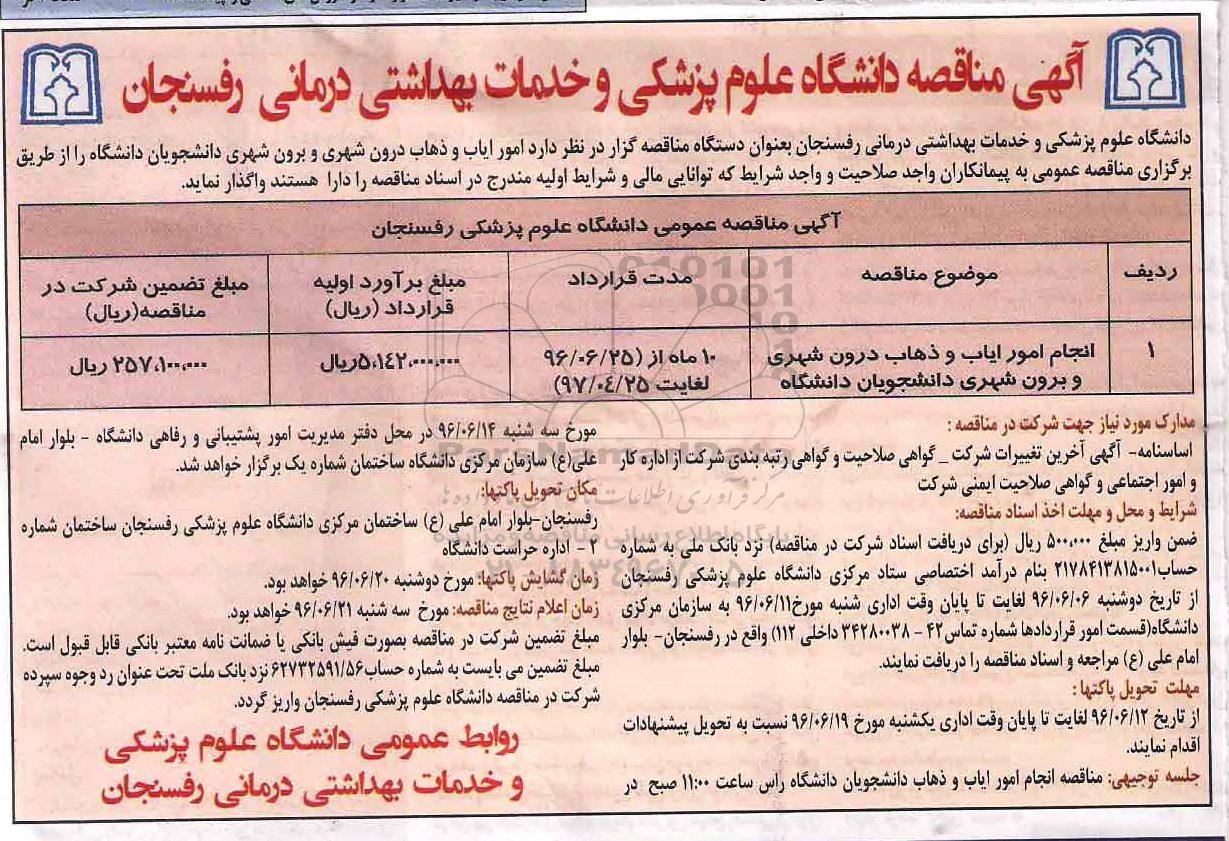 آگهی مناقصه دانشگاه علوم پزشکی و خدمات بهداشتی درمانی رفسنجان
دانشگاه علوم پزشکی و خدمات بهداشتی درمانی رفسنجان بعنوان دستگاه مناقصه گزار در نظر دارد امور ایاب و ذهاب درون شهری و برون شهری دانشجویان دانشگاه را از طریق
برگزاری مناقصه عمومی به پیمانکاران واجد صلاحیت و واجد شرایط که توانایی مالی و شرایط اولیه مندرج در اسناد مناقصه را دارا هستند واگذار نماید.
آگهی مناقصه عمومی دانشگاه علوم پزشکی رفسنجان
ردیف
موضوع مناقصه
مدت قرارداد
مبلغ برآورد اولیه
قرارداد (ریال)
مبلغ تضمین شرکت در
مناقصه(ریال)
۱
انجام امور ایاب و ذهاب درون شهری
و برون شهری دانشجویان دانشگاه
۱۰ ماه از (۹۶/۰۶/۲۵
لغایت ۹۷/۰۴/۲۵)
۵،۱۴۲،۰۰۰،۰۰۰ریال
۲۵۷،۱۰۰،۰۰۰ ریال
مدارک مورد نیاز جهت شرکت در مناقصه :
اساسنامه- آگهی آخرین تغییرات شرکت _ گواهی صلاحیت و گواهی رتبه بندی شرکت از اداره کار
و امور اجتماعی و گواهی صلاحیت ایمنی شرکت
شرایط و محل و مهلت اخذ اسناد مناقصه:
ضمن واریز مبلغ ۵۰۰،۰۰۰ ریال (برای دریافت اسناد شرکت در مناقصه) نزد بانک ملی به شماره
حساب۲۱۷۸۴۱۳۸۱۵۰۰۱ بنام درآمد اختصاصی ستاد مرکزی دانشگاه علوم پزشکی رفسنجان
از تاریخ دوشنبه ۹۶/۰۶/۰۶ لغایت تا پایان وقت اداری شنبه مورخ۹۶/۰۶/۱۱ به سازمان مرکزی
دانشگاه(قسمت امور قراردادها شماره تماس۴۲ - ۳۴۲۸۰۰۳۸ داخلی ۱۱۲) واقع در رفسنجان- بلوار
امام علی (ع) مراجعه و اسناد مناقصه را دریافت نمایند.
مهلت تحویل پاکتها :
از تاریخ ۹۶/۰۶/۱۲ لغایت تا پایان وقت اداری یکشنبه مورخ ۹۶/۰۶/۱۹ نسبت به تحویل پیشنهادات
اقدام نمایند.
جلسه توجیهی: مناقصه انجام امور ایاب و ذهاب دانشجویان دانشگاه راس ساعت ۱۱:۰۰ صبح در
مورخ سه شنبه ۹۶/۰۶/۱۴ در محل دفتر مدیریت امور پشتیبانی و رفاهی دانشگاه - بلوار امام
علی(ع) سازمان مرکزی دانشگاه ساختمان شماره یک برگزار خواهد شد.
مکان تحویل پاکتها:
رفسنجان-بلوار امام علی (ع) ساختمان مرکزی دانشگاه علوم پزشکی رفسنجان ساختمان شماره
۲ - اداره حراست دانشگاه
زمان گشایش پاکتها: مورخ دوشنبه ۹۶/۰۶/۲۰ خواهد بود.
زمان اعلام نتایج مناقصه: مورخ سه شنبه ۹۶/۰۶/۲۱ خواهد بود.
مبلغ تضمین شرکت در مناقصه بصورت فیش بانکی یا ضمانت نامه معتبر بانکی قابل قبول است.
مبلغ تضمین می بایست به شماره حساب۶۲۷۳۲۵۹۱/۵۶ نزد بانک ملت تحت عنوان رد وجوه سپرده
شرکت در مناقصه دانشگاه علوم پزشکی رفسنجان واریز گردد.
روابط عمومی دانشگاه علوم پزشکی
و خدمات بهداشتی درمانی رفسنجان